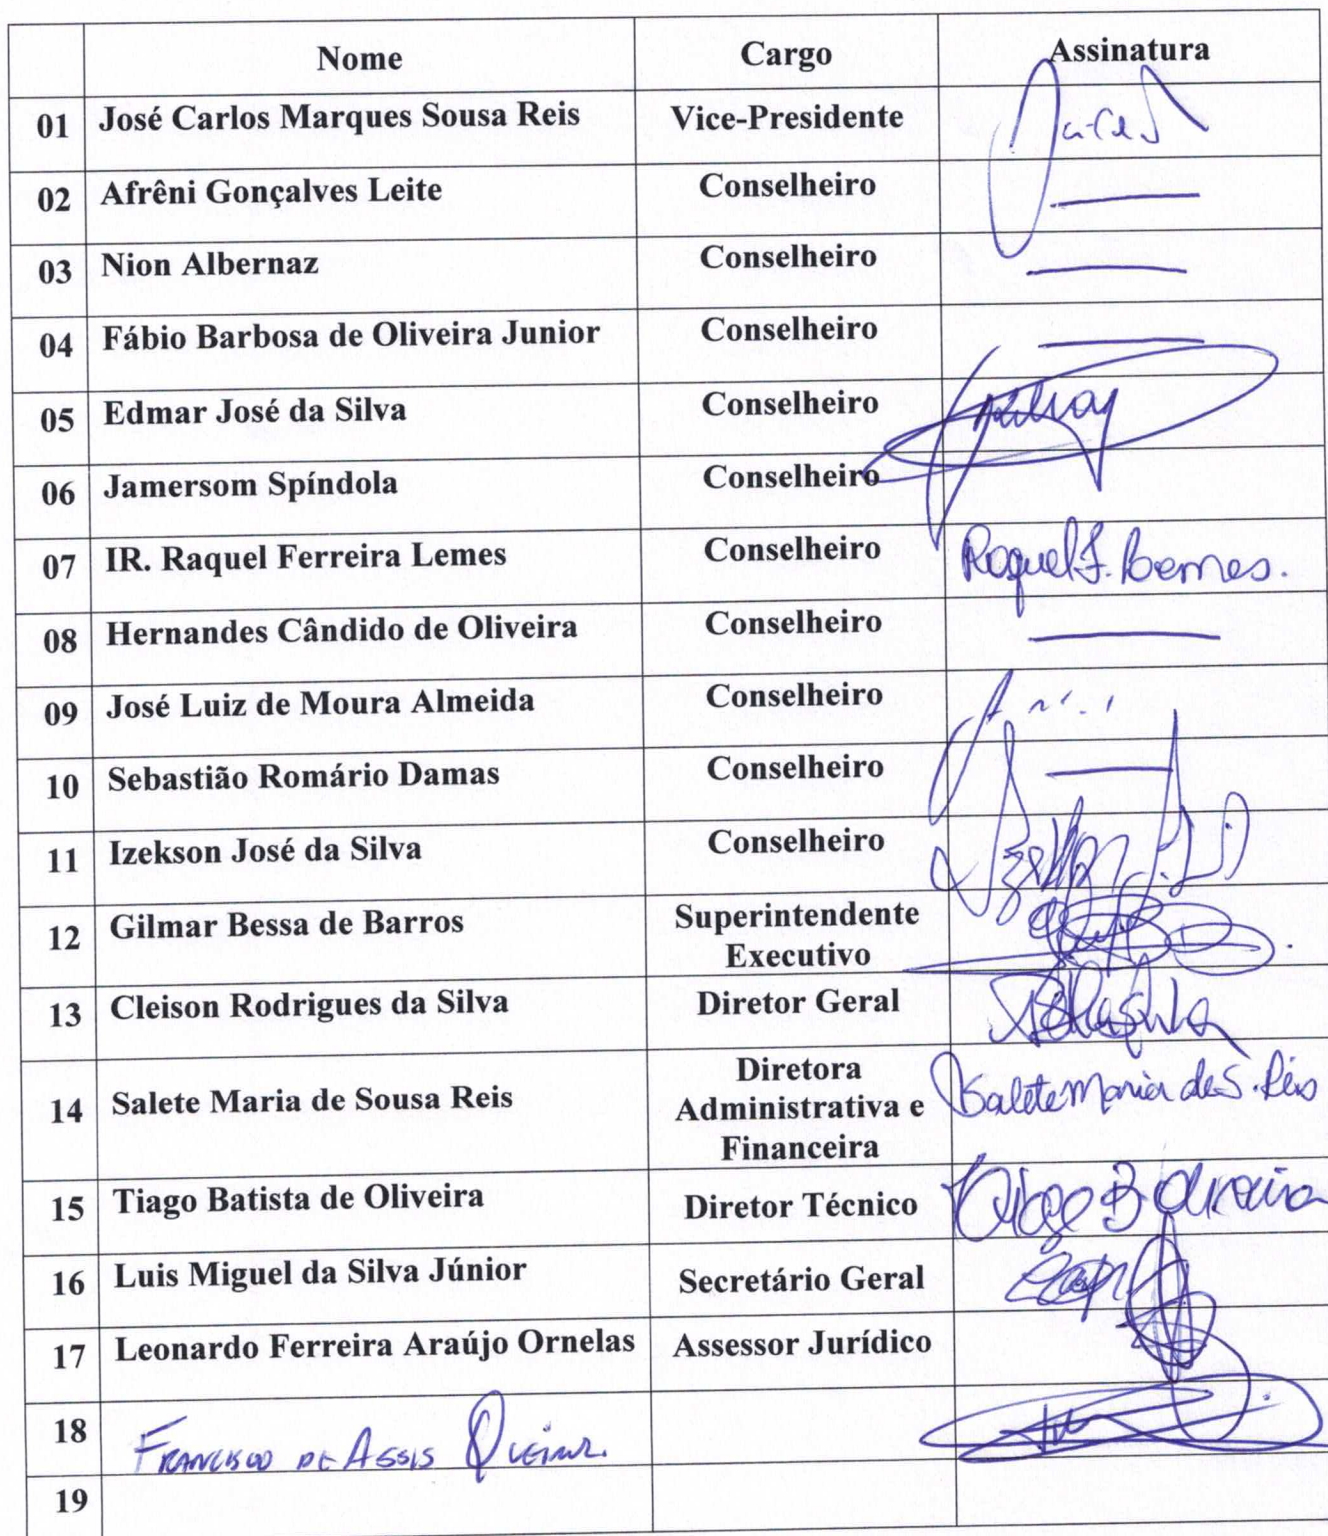 Nome Cargo Assinatura
01 José Carlos Marques Sousa Reis Vice-Presidente
02 Afrêni Gonçalves Leite Conselheiro
03 Nion Albernaz Conselheiro
04 Fábio Barbosa de Oliveira Junior Conselheiro
05 Edmar José da Silva Conselheiro
06 Jamersom Spíndola Conselheiro
07 IR. Raquel Ferreira Lemes Conselheiro Raquel F. Lemes.
08 Hernandes Cândido de Oliveira Conselheiro
09 José Luiz de Moura Almeida Conselheiro
10 Sebastião Romário Damas Conselheiro
11 Izekson José da Silva Conselheiro
12 Gilmar Bessa de Barros Superintendente
Executivo
13 Cleison Rodrigues da Silva Diretor Geral
14 Salete Maria de Sousa Reis Diretora
Administrativa e
Financeira
Salete Maria de S. Reis
15 Tiago Batista de Oliveira Diretor Técnico Tiago B Oliveira
16 Luis Miguel da Silva Júnior Secretário Geral
17 Leonardo Ferreira Araújo Ornelas Assessor Jurídico
18 FRANCISCO DE ASSIS
19